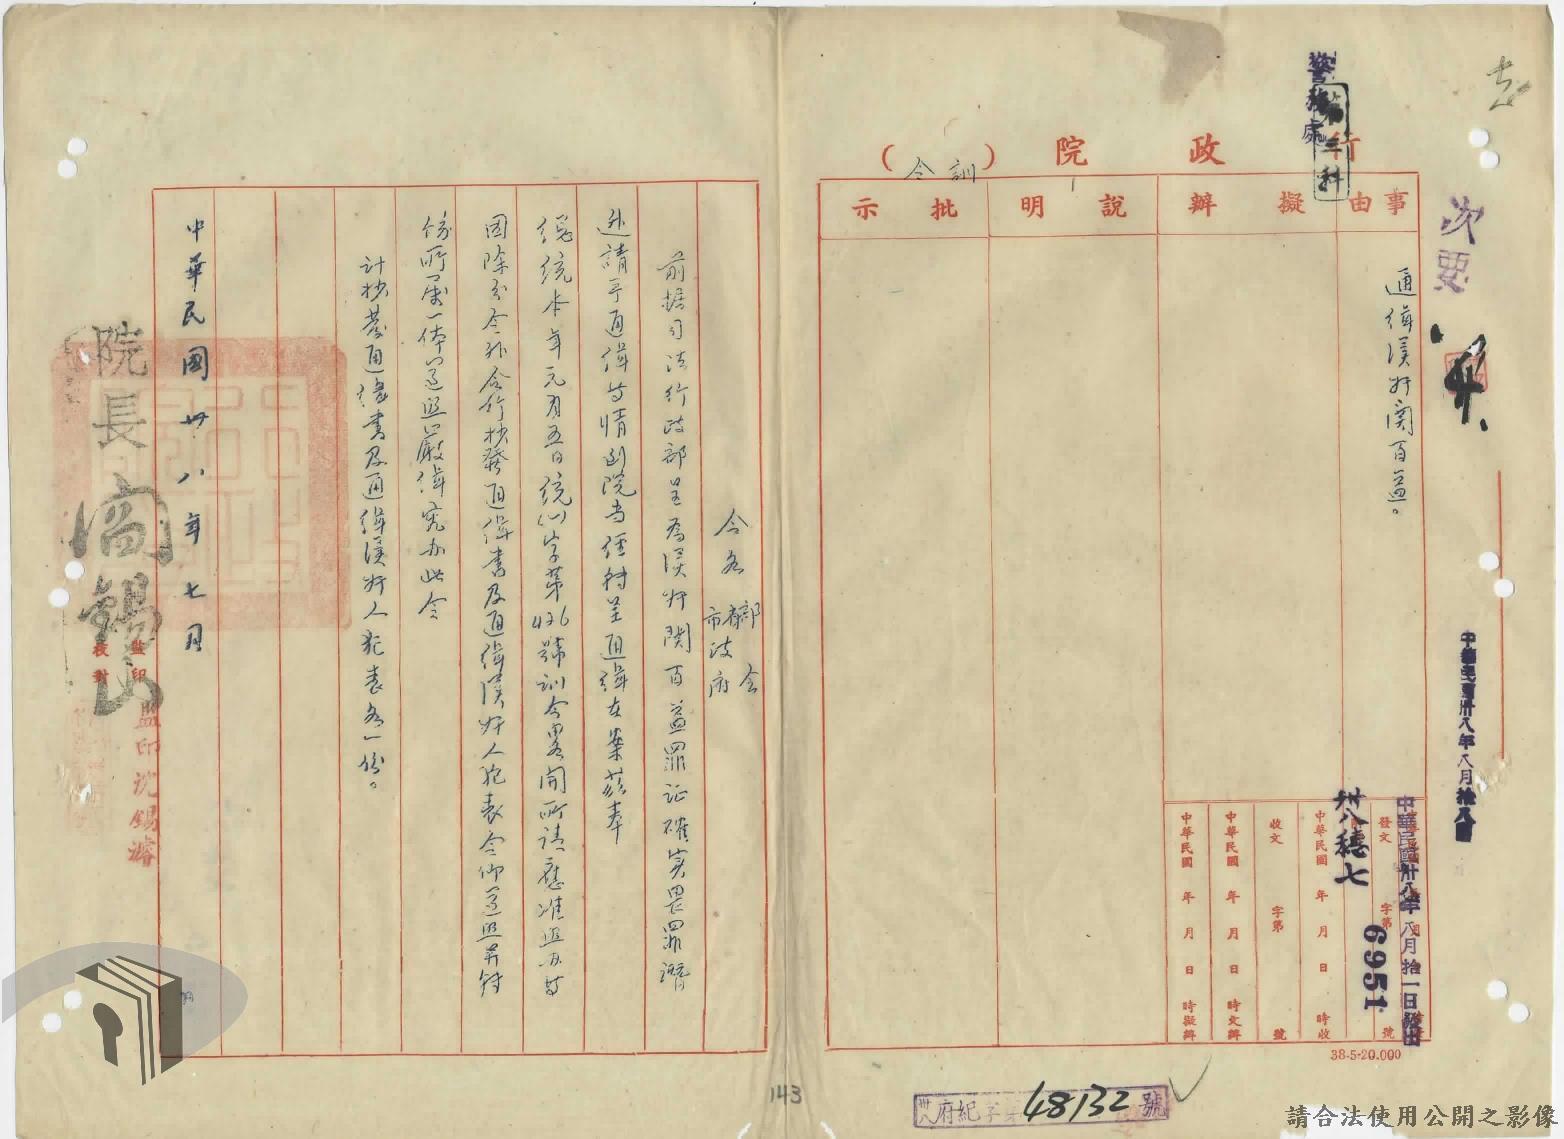 警務處
第三科
行政院（訓令）
事由
擬辦
說明
批示
次要
通緝漢奸関百益。
中華民國卅八年八月拾八日
中華民國卅八年八月拾一日發出
卅八穗七
6951
發文 字第 號
中華民國 年 月 日 時收
收文 字第 號
中華民國 年 月 日 時交辦
中華民國 年 月 日 時擬辦
38-5-20.000
令各部會
市政府
前據司法行政部呈為漢奸関百益罪证確实畏罪潛
逃請予通緝等情到院当經转呈通緝在案茲奉
總統本年元月五日統(八)字第426號訓令畧開所请應准照办等
因除分令外合行抄發通緝書及通緝漢奸人犯表令仰遵照并转
飭所属一体遵照嚴緝究办此令
計抄發通緝書及通緝漢奸人犯表各一份。
中華民國卅八年七月
院長閻錫山
監印
校對
監印沈錫濬
143
卅八府紀字第48132號
請合法使用公開之影像